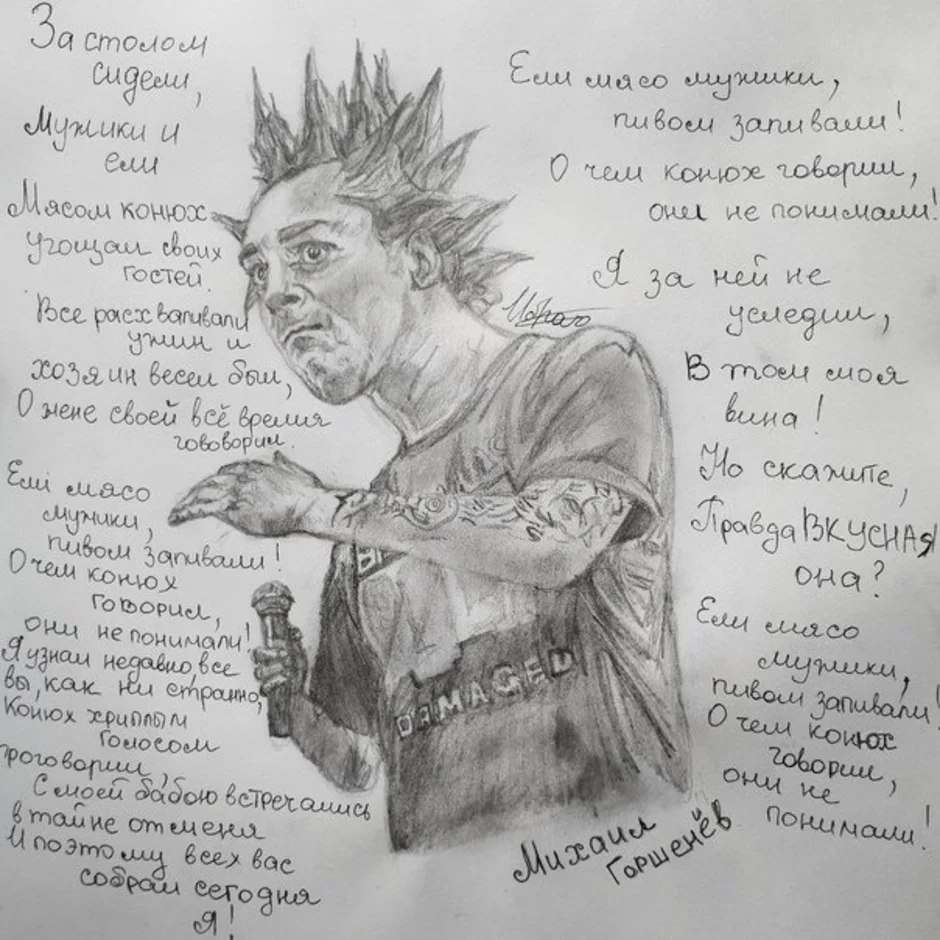 За столом
сидели,
Мужики и
ели
Мясом конюх
угощал своих
гостей.
Все расхваливали
ужин и
хозяин весел был,
О жене своей всё время
гововорил.
Ели мясо
мужики,
пивом запивали!
О чем конюх
говорил,
они не понимали!
Я узнал недавно, все
вы, как ни странно,
Конюх хриплым
голосом
проговорил,
С моей бабою встречались
в тайне от меня
И поэтому всех вас
собрал сегодня
Я!
Ели мясо мужики,
пивом запивали!
О чем конюх говорил,
они не понимали!
Я за ней не
уследил,
В том моя
вина!
Но скажите,
Правда ВКУСНАЯ
она?
Ели мясо
мужики,
пивом запивали!
О чем конюх
говорил,
они не
понимали!
DAMAGED
Михаил
Горшенёв